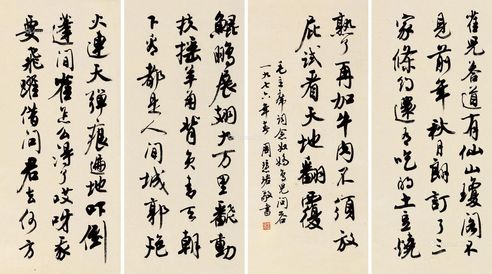 鲲鹏展翅九万里翻动
扶摇羊角背负青天朝
下看都是人间城郭炮
火连天弹痕遍地吓倒
蓬间雀怎么得了哎呀我
要飞跃借问君去何方
雀儿答道有仙山琼阁不
见前年秋月朗订了三
家条约还有吃的土豆烧
熟了再加牛肉不须放
屁试看天地翻覆
毛主席词念奴娇鸟儿问答
一九七六年春 周慧珺敬书